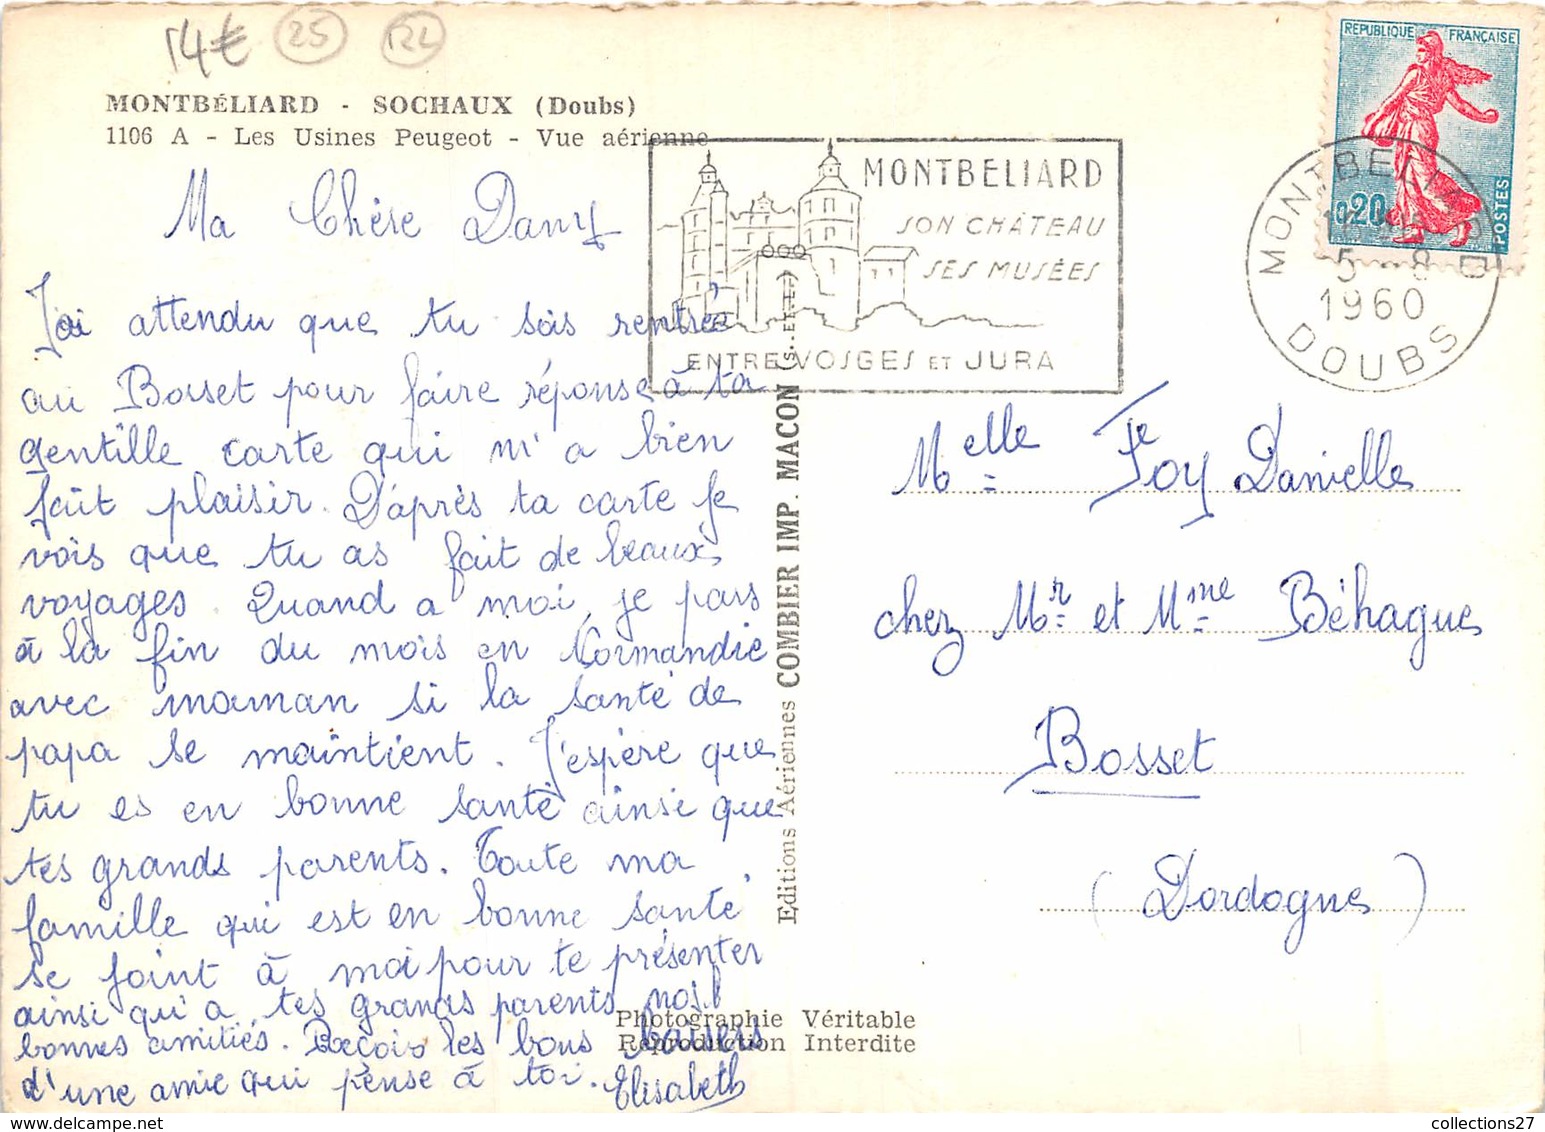 14€ 25 RL
MONTBÉLIARD - SOCHAUX (Doubs)
1106 A - Les Usines Peugeot - Vue aérienne
Ma Chère Dany
J'ai attendu que tu sois rentrée
au Bosset pour faire réponse à ta
gentille carte qui m'a bien
fait plaisir. D'après ta carte je
vois que tu as fait de beaux
voyages. Quand a moi, je pars
à la fin du mois en Normandie
avec maman si la santé de
papa se maintient. J'espère que
tu es en bonne santé ainsi que
tes grands parents. Toute ma
famille qui est en bonne santé
se joint à moi pour te présenter
ainsi qu'a tes grands parents nos
bonnes amitiés. Reçois les bons baisers
d'une amie qui pense à toi. Elisabeth
MONTBELIARD
SON CHÂTEAU
SES MUSÉES
ENTRE VOSGES ET JURA
RÉPUBLIQUE FRANÇAISE
0,20
POSTES
MONTBELIARD
5 - 8
1960
DOUBS
Editions Aériennes COMBIER IMP. MACON (S.-ET-L.)
Melle Foy Danielle
chez Mr et Mme Béhague
Bosset
(Dordogne)
Photographie Véritable
Reproduction Interdite
collections27